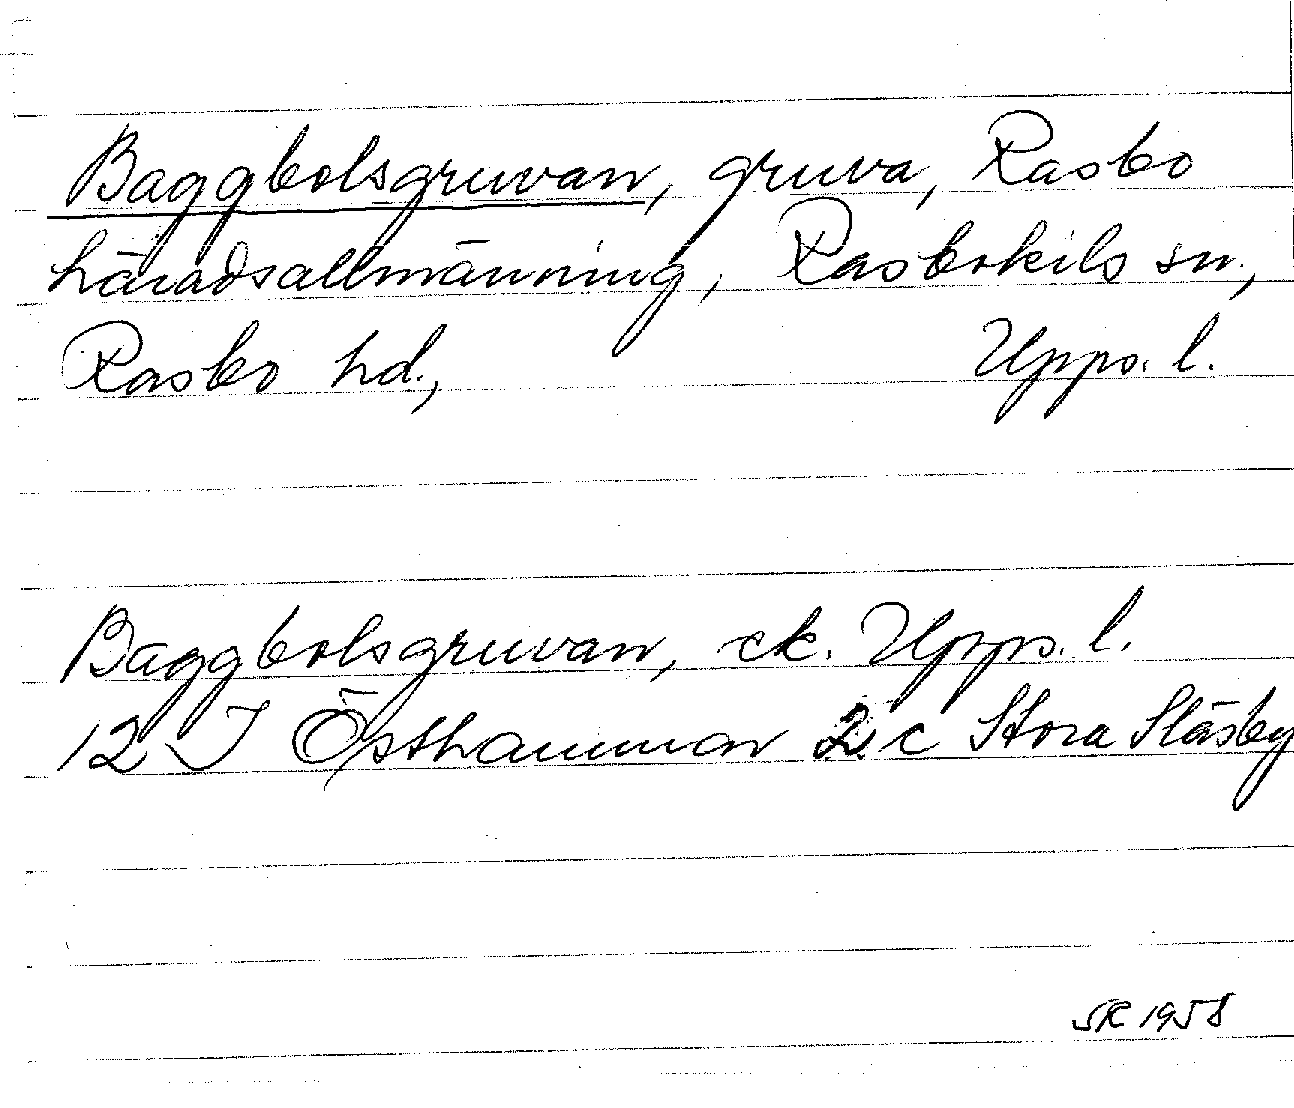 Baggbolsgruvan, gruva, Rasbo
häradsallmänning, Rasbokils sn.,
Rasbo hd., Upps. l.
Baggbolsgruvan, ek. Upps. l.
12 I Östhammar 2 c Stora Släsby
SR 1958